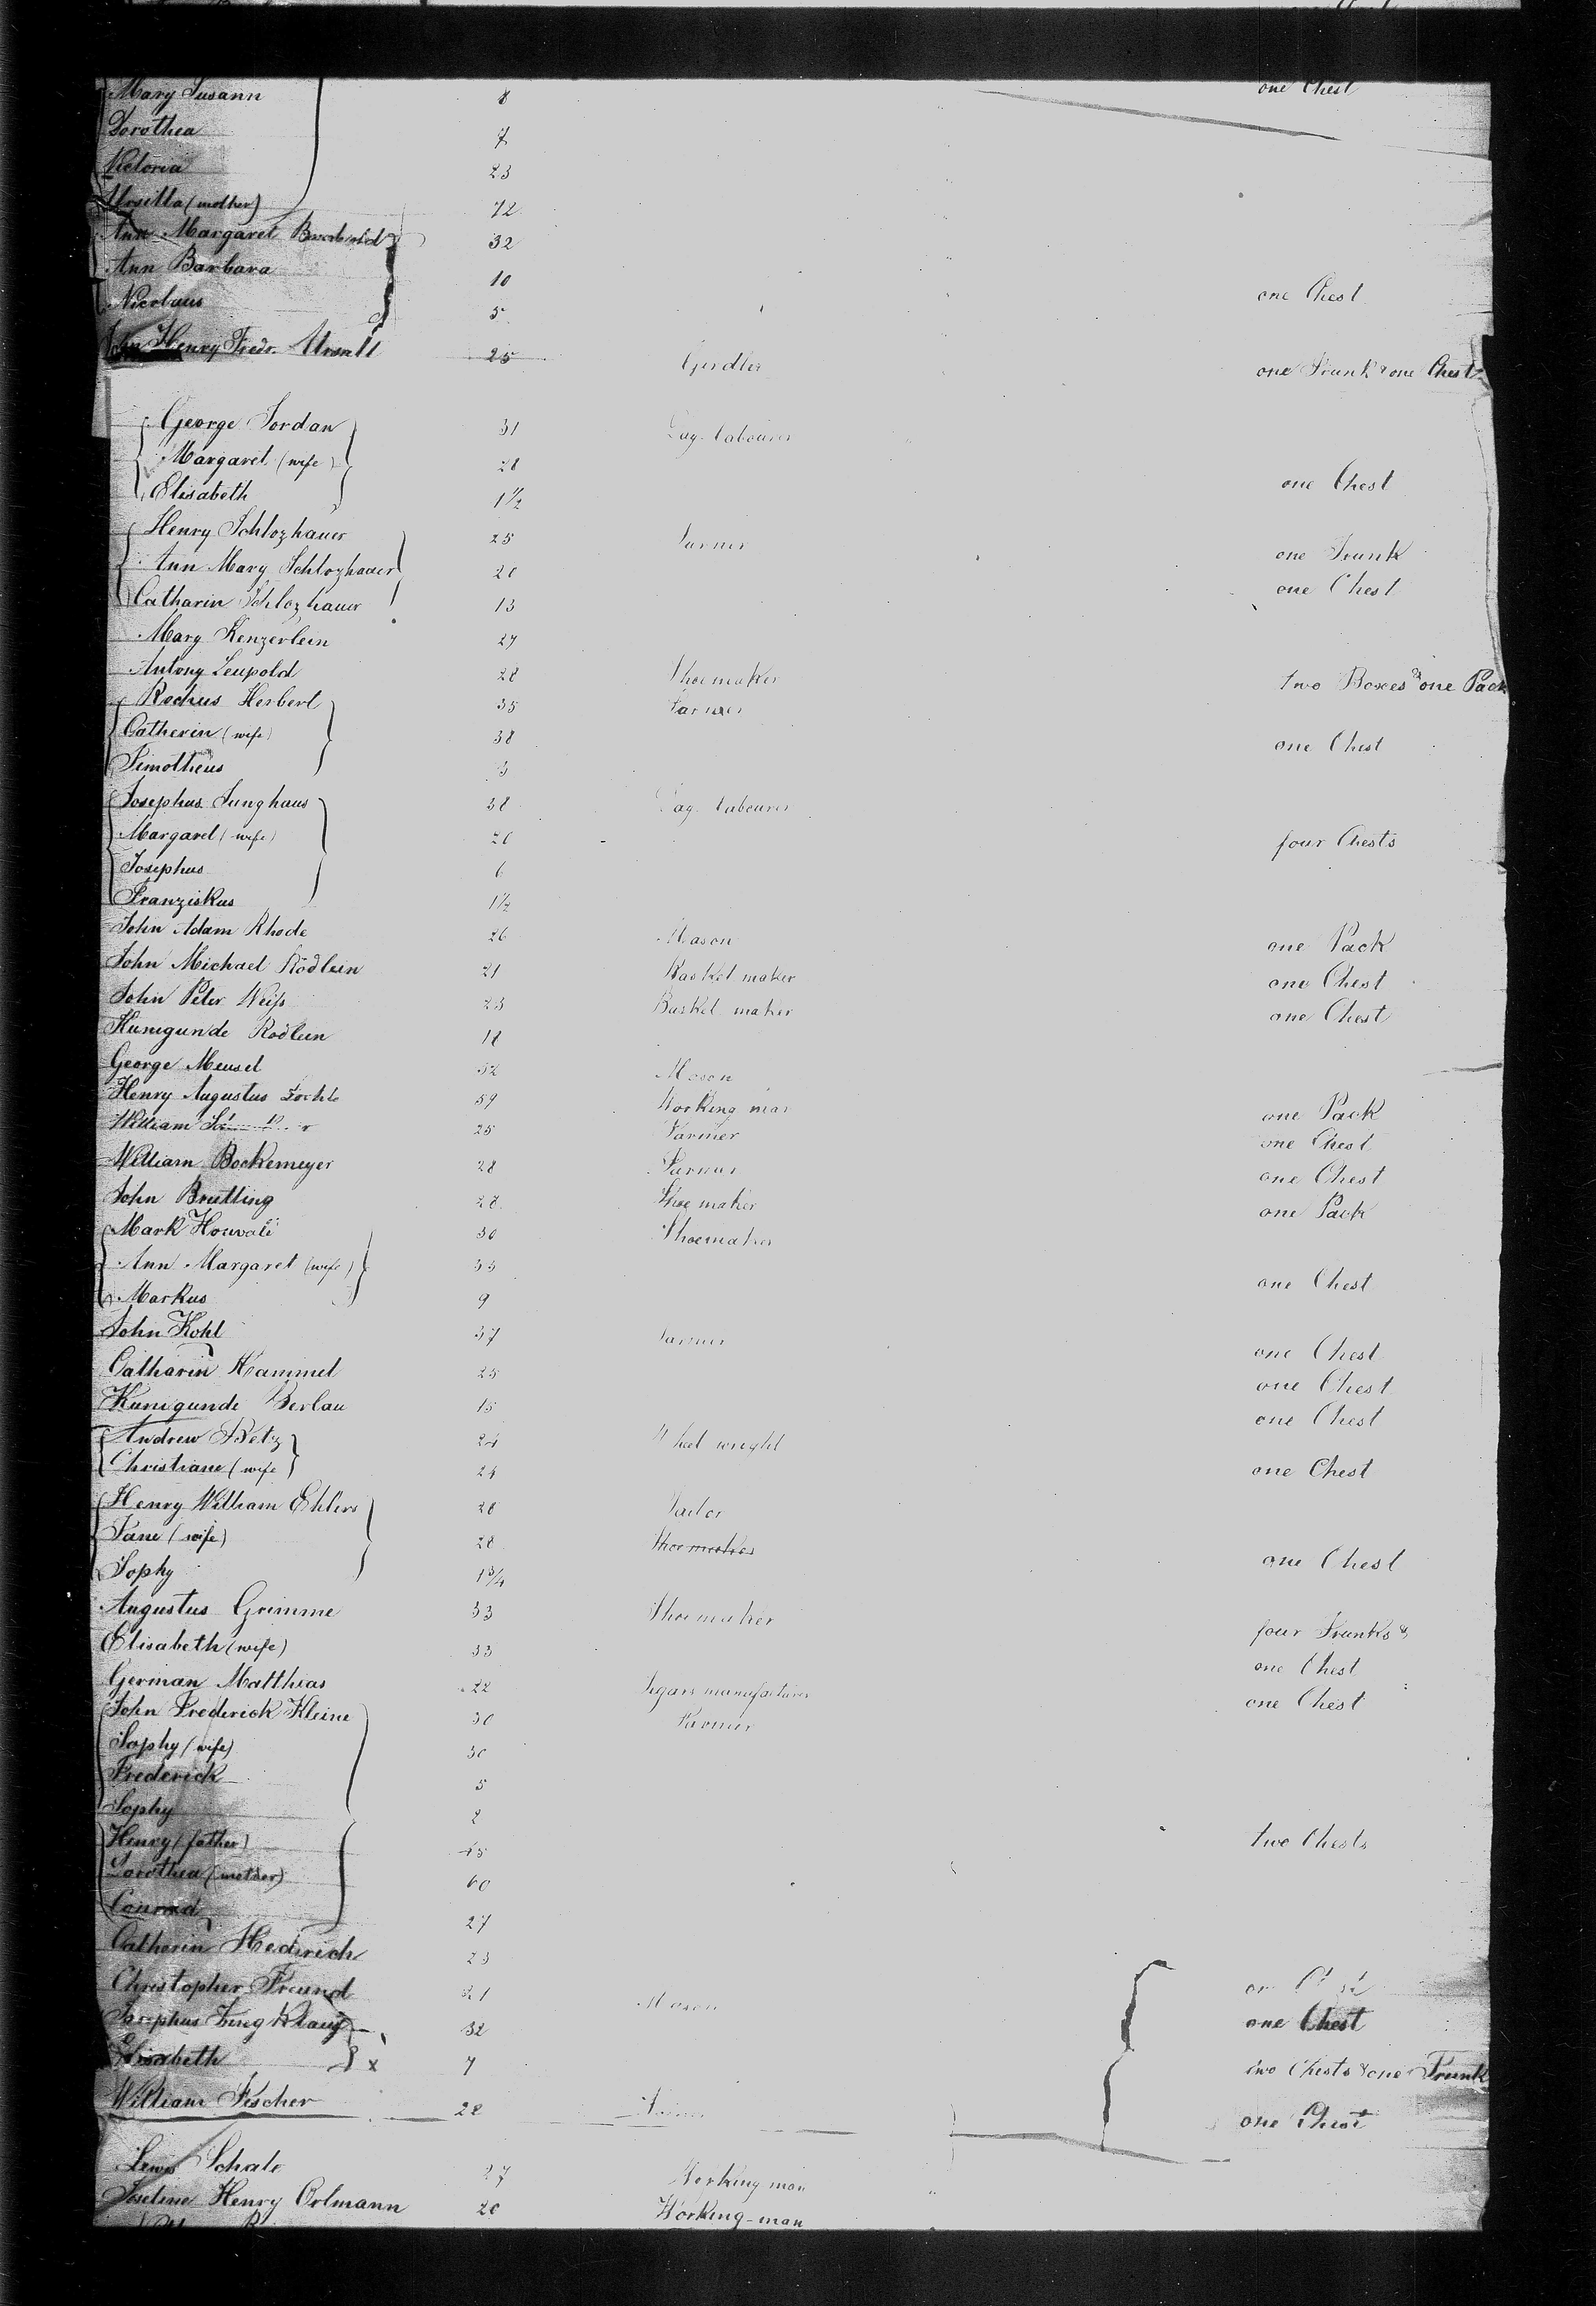 Mary Susann 8 one Chest
Dorothea 7
Victoria 23
Ursilla (mother) 72
Ann Margaret 32
Ann Barbara 10
Nicolaus 5 one Chest
John Henry Fredr. 25 Girdler one Trunk & one Chest
George Jordan 31 Day-labourer
Margaret (wife) 28
Elisabeth 1 1/2 one Chest
Henry Schlozhauer 25 Farmer
Ann Mary Schlozhauer 20 one Trunk
Catharin Schlozhauer 13 one Chest
Mary Kenzerlein 27
Antony Leupold 28 Shoemaker two Boxes & one Pack
Rochus Herbert 35 Farmer
Catherin (wife) 38 one Chest
Timotheus 3
Josephus Junghaus 38 Day-labourer
Margaret (wife) 26 four Chests
Josephus 6
Franziskus 1 1/2
John Adam Rhode 26 Mason one Pack
John Michael Rödlein 21 Basket maker one Chest
John Peter Weiß 23 Basket maker one Chest
Kunigunde Rödlein 18
George Meusel 32 Mason
Henry Augustus 59 Working man one Pack
William 25 Farmer one Chest
William Bockemeyer 28 Farmer one Chest
John Brutting 28 Shoemaker one Pack
Mark 30 Shoemaker
Ann Margaret (wife) 33 one Chest
Markus 9
John Kohl 37 Farmer one Chest
Catharin Hammel 25 one Chest
Kunigunde Berlau 15 one Chest
Andrew Betz 24 Wheel wright
Christiane (wife) 24 one Chest
Henry William Ehlers 28 Tailor
Jane (wife) 28 Shoemaker
Sophy 1 3/4 one Chest
Augustus Grimme 33 Shoemaker four Trunks &
Elisabeth (wife) 33 one Chest
German Matthias 22 Segars manufacturer one Chest
John Frederick Kleine 30 Farmer
Sophy (wife) 30
Frederick 5
Sophy 2
Henry (father) two Chests
Dorothea (mother) 60
Conrad 27
Catherin Hedirich 23
Christopher Freund 21 Mason
Josephus 32 one Chest
Elisabeth x 7 two Chests & one Trunk
William Fischer 28 one Chest
Lewis Schale 27 Working man
Henry Orlmann 20 Working-man